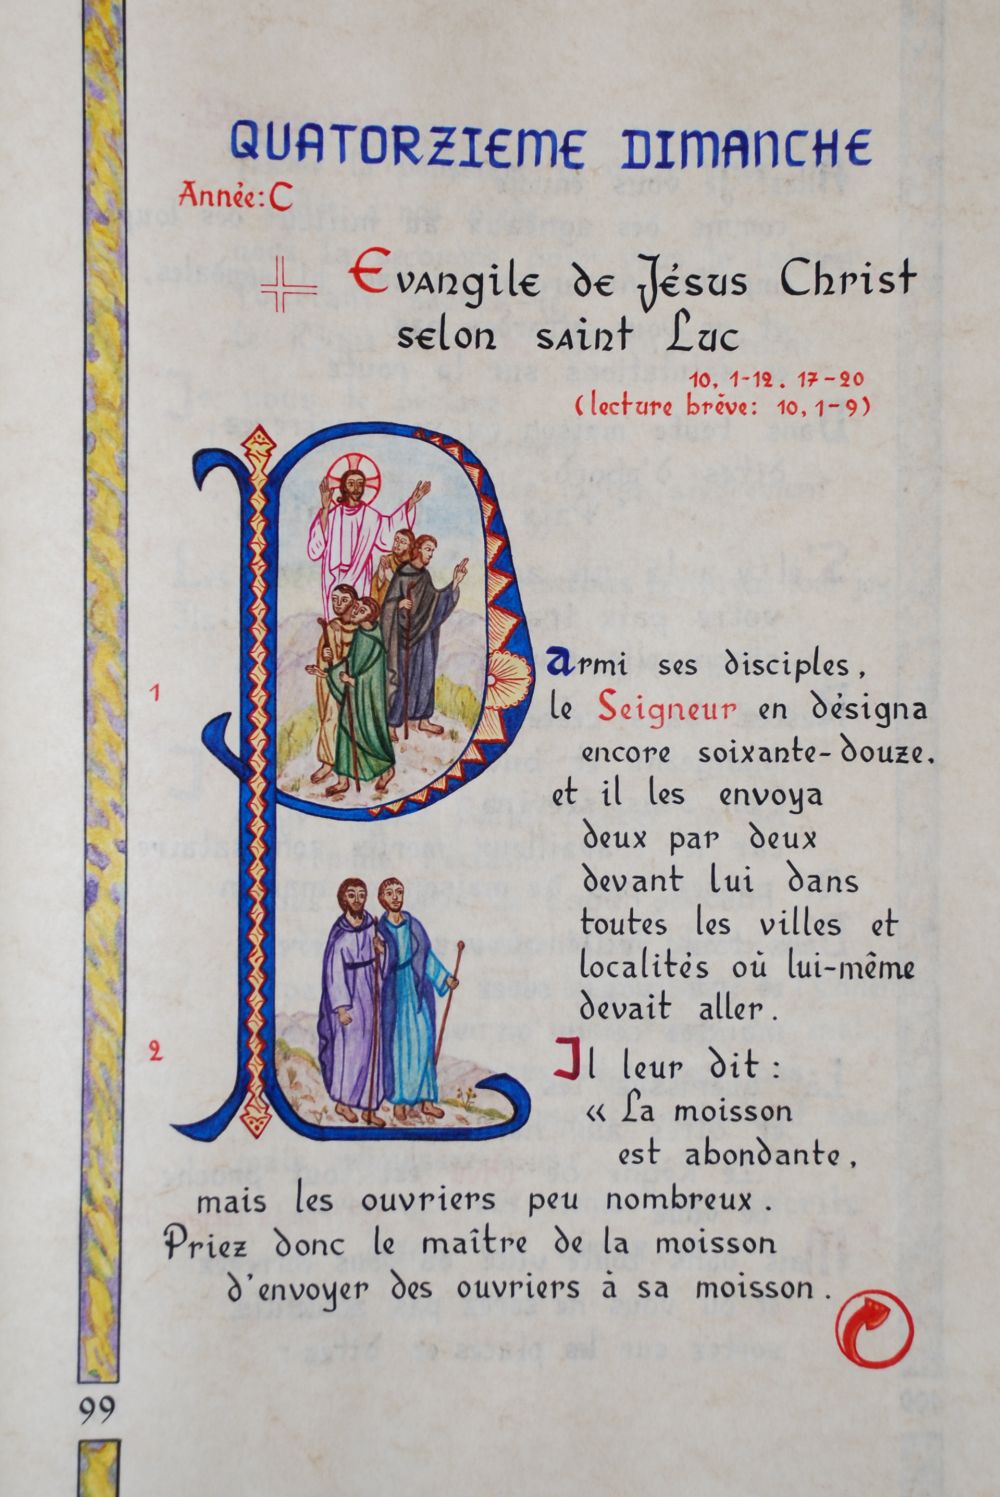 QUATORZIEME DIMANCHE
Année: C
Evangile de Jésus Christ
selon saint Luc
10, 1-12. 17-20
(lecture brève: 10, 1-9)
Parmi ses disciples,
1
le Seigneur en désigna
encore soixante-douze.
et il les envoya
deux par deux
devant lui dans
toutes les villes et
localités où lui-même
devait aller.
2
Il leur dit :
« La moisson
est abondante,
mais les ouvriers peu nombreux.
Priez donc le maître de la moisson
d'envoyer des ouvriers à sa moisson.
99